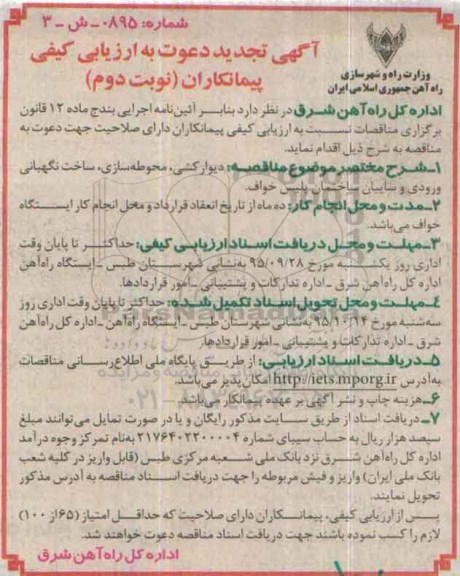 شماره: ۰۸۹۵ - ش - ۳
آگهی تجدید دعوت به ارزیابی کیفی
پیمانکاران (نوبت دوم)
وزارت راه و شهرسازی
راه آهن جمهوری اسلامی ایران
اداره کل راه آهن شرق در نظر دارد بنابر آئین‌نامه اجرایی بندج ماده ۱۲ قانون
برگزاری مناقصات نسبت به ارزیابی کیفی پیمانکاران دارای صلاحیت جهت دعوت به
مناقصه به شرح ذیل اقدام نماید.
۱ـ شرح مختصر موضوع مناقصه: دیوارکشی، محوطه‌سازی، ساخت نگهبانی
ورودی و سایبان ساختمان پلیس خواف.
۲ـ مدت و محل انجام کار: ده ماه از تاریخ انعقاد قرارداد و محل انجام کار ایستگاه
خواف می‌باشد.
۳ـ مهلت و محل دریافت اسناد ارزیابی کیفی: حداکثر تا پایان وقت
اداری روز یکشنبه مورخ ۹۵/۰۹/۲۸ به‌نشانی شهرستان طبس ـ ایستگاه راه‌آهن
اداره کل راه‌آهن شرق ـ اداره تدارکات و پشتیبانی ـ امور قراردادها.
۴ـ مهلت و محل تحویل اسناد تکمیل شده: حداکثر تا پایان وقت اداری روز
سه‌شنبه مورخ ۹۵/۱۰/۱۴ به نشانی شهرستان طبس ـ ایستگاه راه‌آهن ـ اداره کل راه‌آهن
شرق ـ اداره تدارکات و پشتیبانی ـ امور قراردادها.
۵ـ دریافت اسناد ارزیابی: از طریق پایگاه ملی اطلاع‌رسانی مناقصات
به‌آدرس http://iets.mporg.ir امکان‌پذیر می‌باشد.
۶ـ هزینه چاپ و نشر آگهی بر عهده پیمانکار می‌باشد.
۷ـ دریافت اسناد از طریق سایت مذکور رایگان و یا در صورت تمایل می‌توانند مبلغ
سیصد هزار ریال به حساب سیبای شماره ۲۱۷۶۴۰۲۳۰۰۰۰۴ به‌نام تمرکز وجوه درآمد
اداره کل راه‌آهن شرق نزد بانک ملی شعبه مرکزی طبس (قابل واریز در کلیه شعب
بانک ملی ایران) واریز و فیش مربوطه را جهت دریافت اسناد مناقصه به آدرس مذکور
تحویل نمایند.
پس از ارزیابی کیفی، پیمانکاران دارای صلاحیت که حداقل امتیاز (۶۵ از ۱۰۰)
لازم را کسب نموده باشند جهت دریافت اسناد مناقصه دعوت خواهند شد.
اداره کل راه آهن شرق